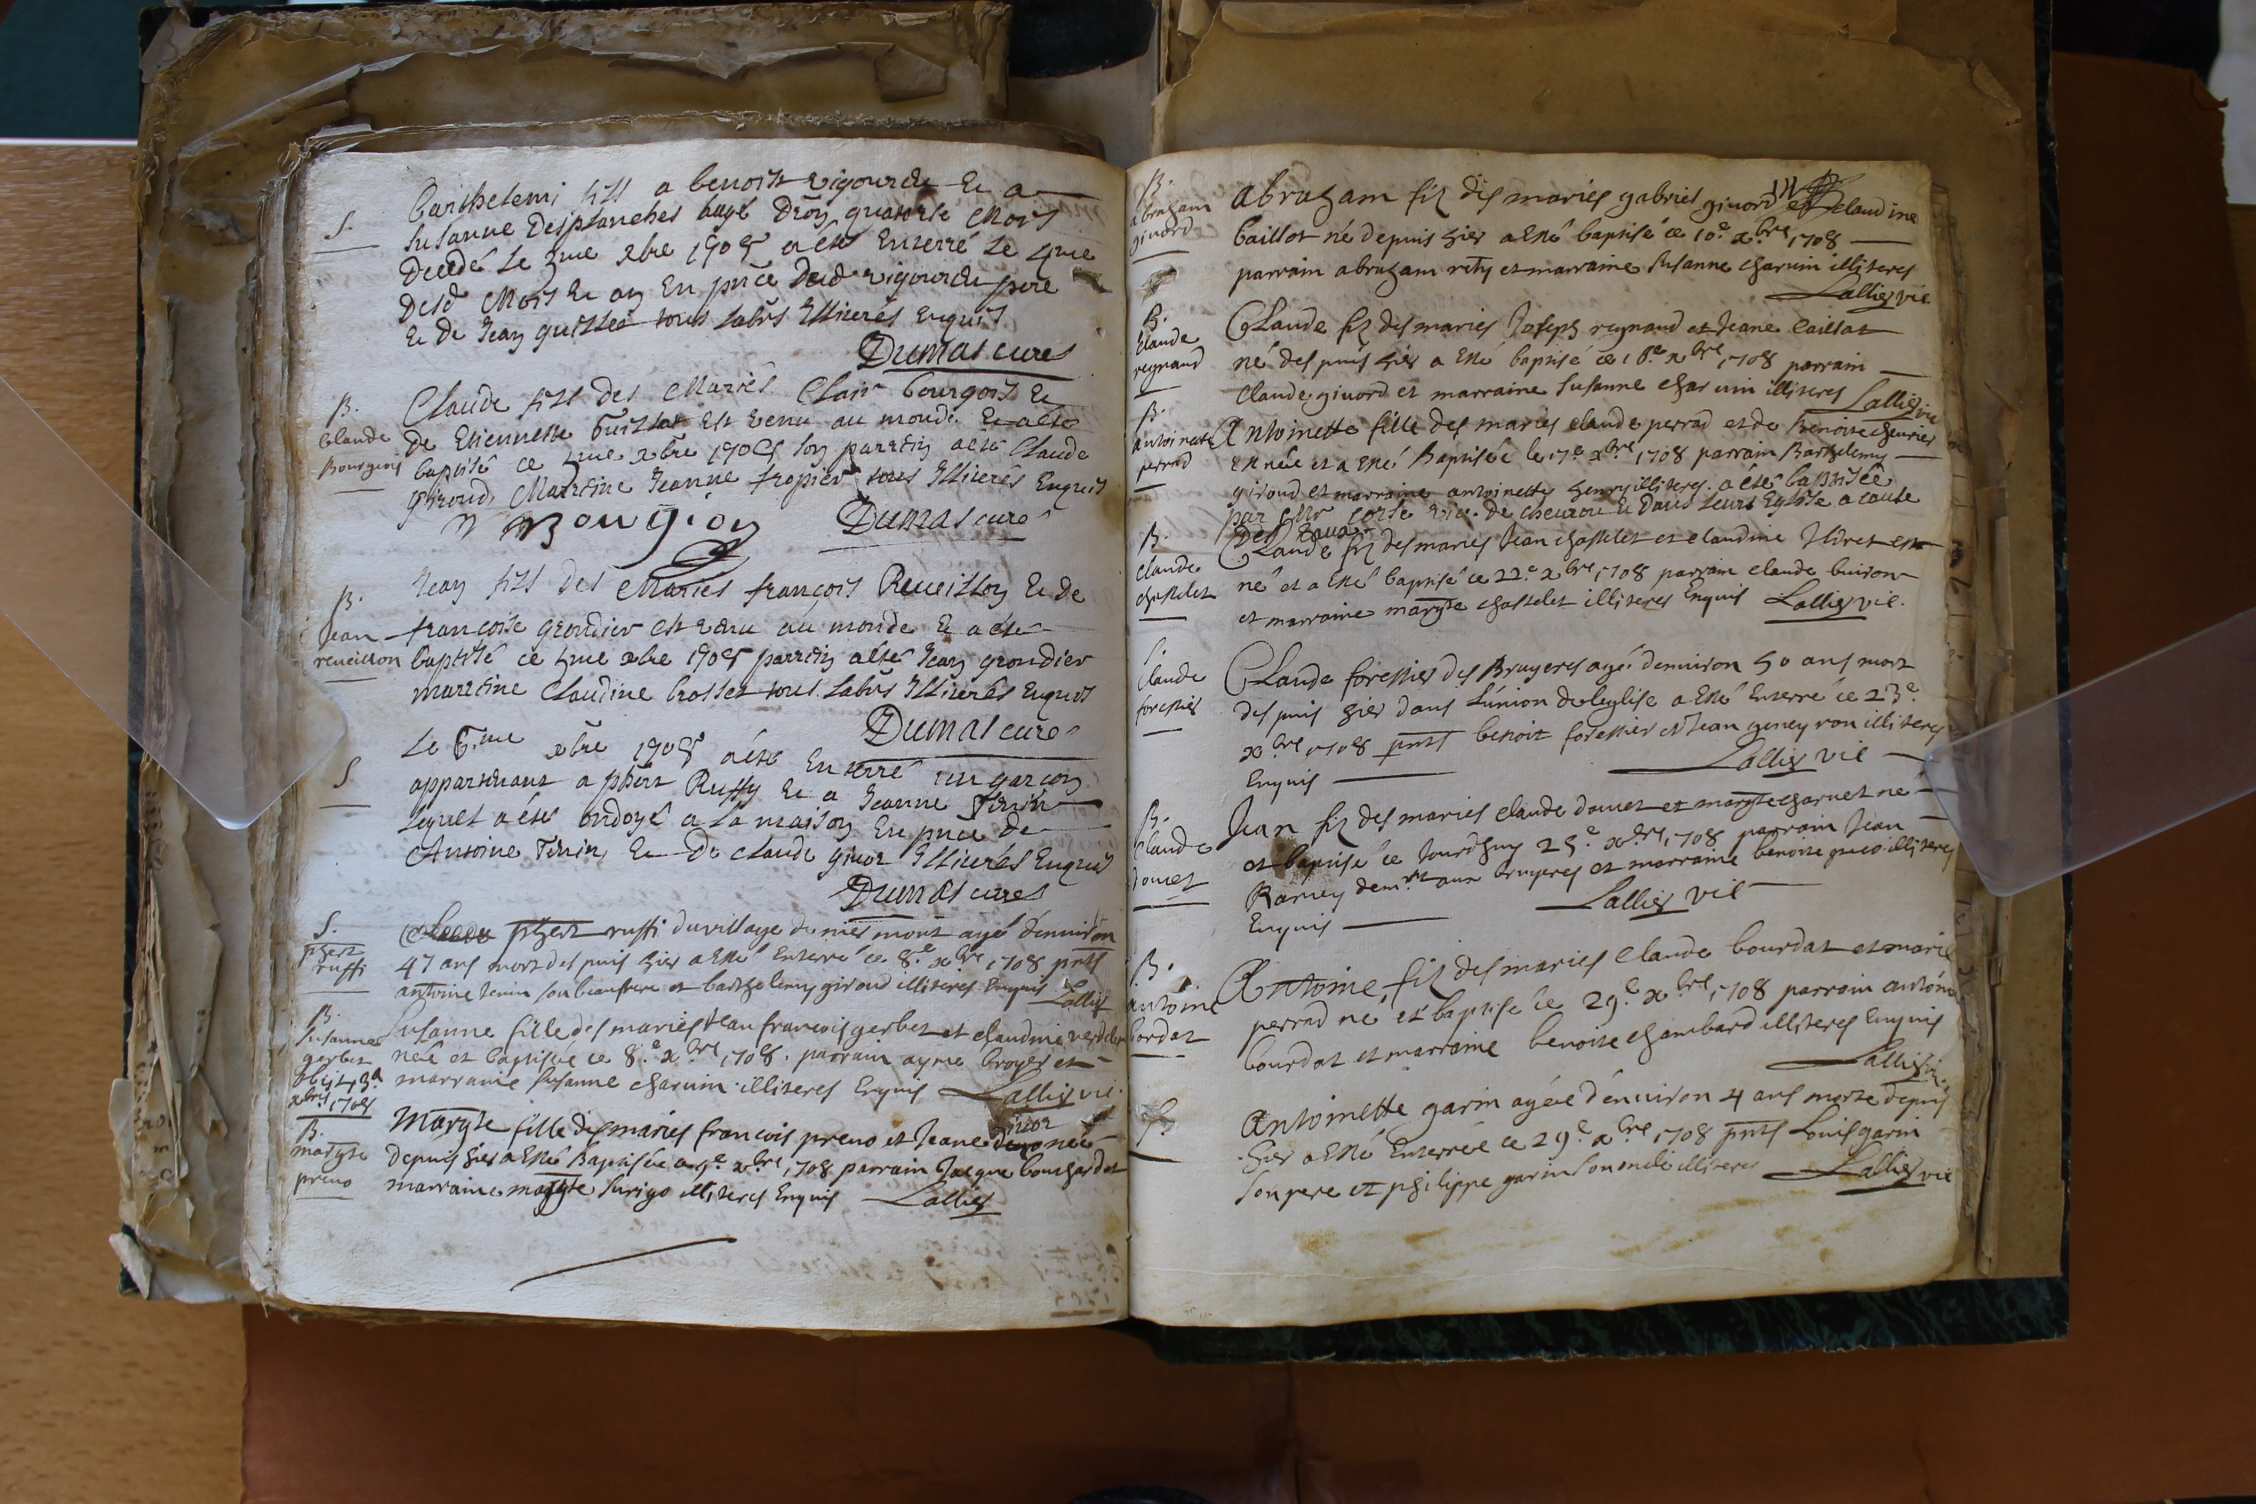 S.
Barthelemi fils a benoist vigourdu &
Susanne Desplanches
decedé le 3me xbre 1708 a été enterré le 4me
dud mois & an en pnce dud vigourdu pere
& de Jean tous labrs Illiterés enquis
Dumas curé
B.
Claude
Bourgeois
Claude fils des Mariés Clair bourgois &
de Etiennette est venu au monde & a été
baptisé ce 4me xbre 1708 son parrein a eté Claude
giroud Marreine Jeanne tropier tous Illiterés Enquis
Dumas curé
B.
Jean
reveillon
Jean fils des Mariés françois Reveillon & de
françoise grondier est venu au monde & a été
baptisé ce 4me xbre 1708 parrein a été Jean grondier
marreine Claudine brosset tous labrs Illiterés Enquis
Dumas curé
S
Le 6.me xbre 1708 a été Enterré un garçon
appartenant a phert Ruffy & a Jeanne
lequel a été ondoyé a la maison En pnce de
Antoine Tenin & De claude givor Illiterés Enquis
Dumas curé
S.
phert
ruffi
phert ruffi du village de mont agé denviron
47 ans mort des puis hier a esté Enterré ce 8.e xbre 1708 pnts
antoine tenin son beaufrere et barthelemy giroud illiteres Enquis Lallier
B.
Susanne
gerbet
obiit 13a
xbris 1708
Susanne fille des mariés Jean françois gerbet et claudine
neé et baptiseé ce 8.e xbre 1708. parrain ayme broyer et
marraine Susanne charvin illiteres Enquis Lallier vic.
B.
margte
preno
Margte fille des mariés françois preno et Jeane neé
depuis hier a esté Baptiseé ce 9.e xbre 1708 parrain Jacque bouchardat
marraine margte Surigo illiteres Enquis Lallier
B.
abraham
givord
abraham fiz des mariés gabriel givord et claudine
baillot né depuis hier a esté baptisé ce 10.e xbre 1708
parrain abraham rety et marraine Susanne charvin illiteres
Lallier vic
B.
Claude
regnaud
Claude fiz des mariés Joseph regnaud et Jeane Caillat
né des puis hier a esté baptisé ce 16.e xbre 1708 parrain
Claude givord et marraine Susanne charvin illiteres Lallier vic
B.
antoinette
perrad
Antoinette fille des mariés claude perrad et de Benoite chevrier
est neé et a esté Baptiseé le 17.e xbre 1708 parrain Barthelemy
giroud et marraine antoinette henry illiteres. a été baptisée
par Mr vic. de chevrou & dans leur Eglise a cause
des Eaux
B.
Claude
chastelet
Claude fiz des mariés Jean chastelet et claudine est
né et a esté baptisé ce 22.e xbre 1708 parrain claude buiron
et marraine margte chastelet illiteres Enquis Lallier vic.
S.
Claude
forestier
Claude forestier des Bruyeres agé denviron 50 ans mort
des puis hier dans L'union de leglise a esté Enterré ce 23.e
xbre 1708 pnts benoit forestier et Jean geneyron illiteres
Enquis Lallier vic
B.
Claude
douet
Jean fiz des mariés claude douet et margte charnet né
et baptisé ce Jourdhuy 25.e xbre 1708 parrain Jean
Ramey demrt aux bruyeres et marraine benoite illiteres
Enquis Lallier vic
B.
antoine
bordat
Antoine fiz des mariés Claude bourdat et marie
perrad né et baptisé ce 29.e xbre 1708 parrain antoine
bourdat et marraine benoite chambard illiteres Enquis
Lallier vic.
S.
Antoinette garin ageé d'environ 4 ans morte depuis
hier a esté Enterrée ce 29.e xbre 1708 pnts Louis garin
son pere et philippe garin son oncle illiteres Lallier vic